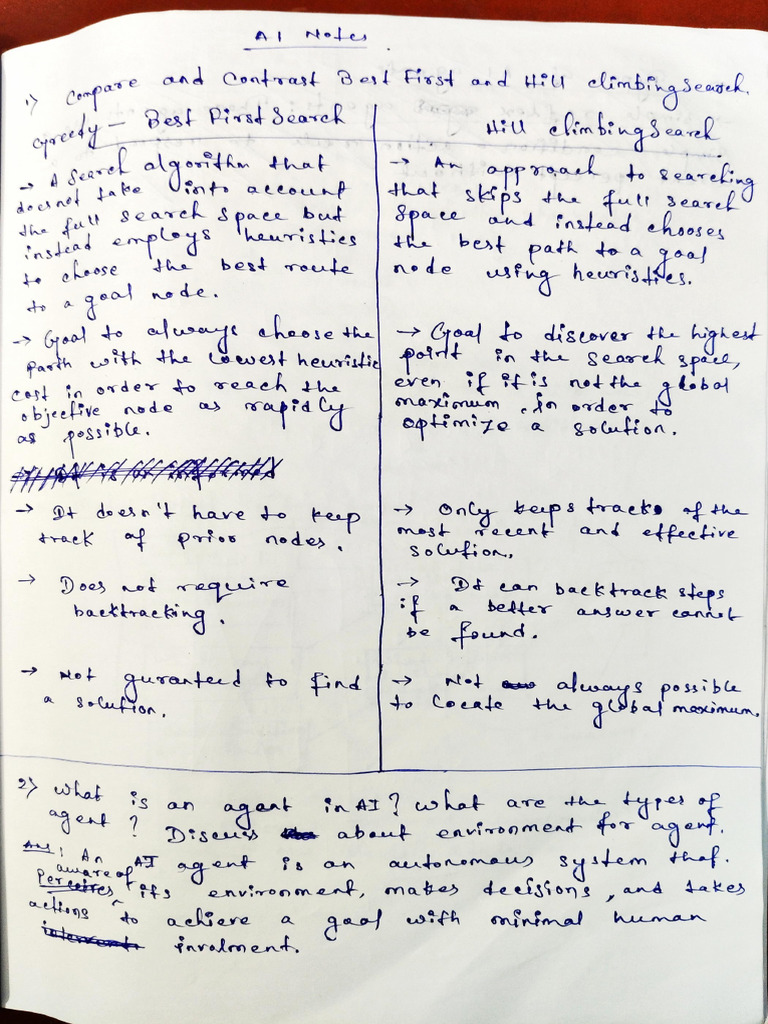 AI Notes
1) Compare and Contrast Best First and Hill climbing Search.
Greedy - Best First Search
→ A Search algorithm that
does not take into account
the full search space but
instead employs heuristics
to choose the best route
to a goal node.
→ Goal to always choose the
path with the lowest heuristic
cost in order to reach the
objective node as rapidly
as possible.
→ It doesn't have to keep
track of prior nodes.
→ Does not require
backtracking.
→ Not guranteed to find
a solution.
Hill climbing Search
→ An approach to searching
that skips the full search
Space and instead chooses
the best path to a goal
node using heuristics.
→ Goal to discover the highest
point in the search space,
even if it is not the global
maximum, in order to
optimize a solution.
→ Only keeps track of the
most recent and effective
solution.
→ It can backtrack steps
if a better answer cannot
be found.
→ Not always possible
to locate the global maximum.
2) What is an agent in AI? What are the types of
agent? Discuss about environment for agent.
Ans: An AI agent is an autonomous system that
aware of
Perceives its environment, makes decisions, and takes
actions to achieve a goal with minimal human
involment.